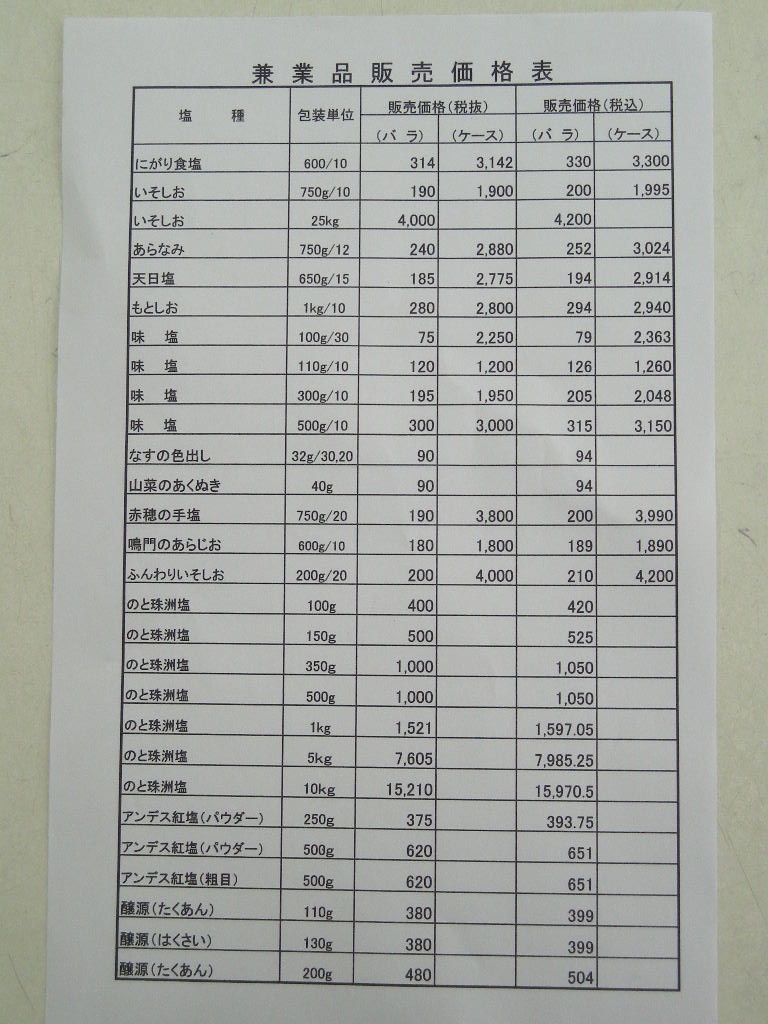 兼業品販売価格表
塩　種 包装単位 販売価格(税抜) 販売価格(税込)
(バラ) (ケース) (バラ) (ケース)
にがり食塩 600/10 314 3,142 330 3,300
いそしお 750g/10 190 1,900 200 1,995
いそしお 25kg 4,000 4,200
あらなみ 750g/12 240 2,880 252 3,024
天日塩 650g/15 185 2,775 194 2,914
もとしお 1kg/10 280 2,800 294 2,940
味　塩 100g/30 75 2,250 79 2,363
味　塩 110g/10 120 1,200 126 1,260
味　塩 300g/10 195 1,950 205 2,048
味　塩 500g/10 300 3,000 315 3,150
なすの色出し 32g/30,20 90 94
山菜のあくぬき 40g 90 94
赤穂の手塩 750g/20 190 3,800 200 3,990
鳴門のあらじお 600g/10 180 1,800 189 1,890
ふんわりいそしお 200g/20 200 4,000 210 4,200
のと珠洲塩 100g 400 420
のと珠洲塩 150g 500 525
のと珠洲塩 350g 1,000 1,050
のと珠洲塩 500g 1,000 1,050
のと珠洲塩 1kg 1,521 1,597.05
のと珠洲塩 5kg 7,605 7,985.25
のと珠洲塩 10kg 15,210 15,970.5
アンデス紅塩(パウダー) 250g 375 393.75
アンデス紅塩(パウダー) 500g 620 651
アンデス紅塩(粗目) 500g 620 651
醸源(たくあん) 110g 380 399
醸源(はくさい) 130g 380 399
醸源(たくあん) 200g 480 504